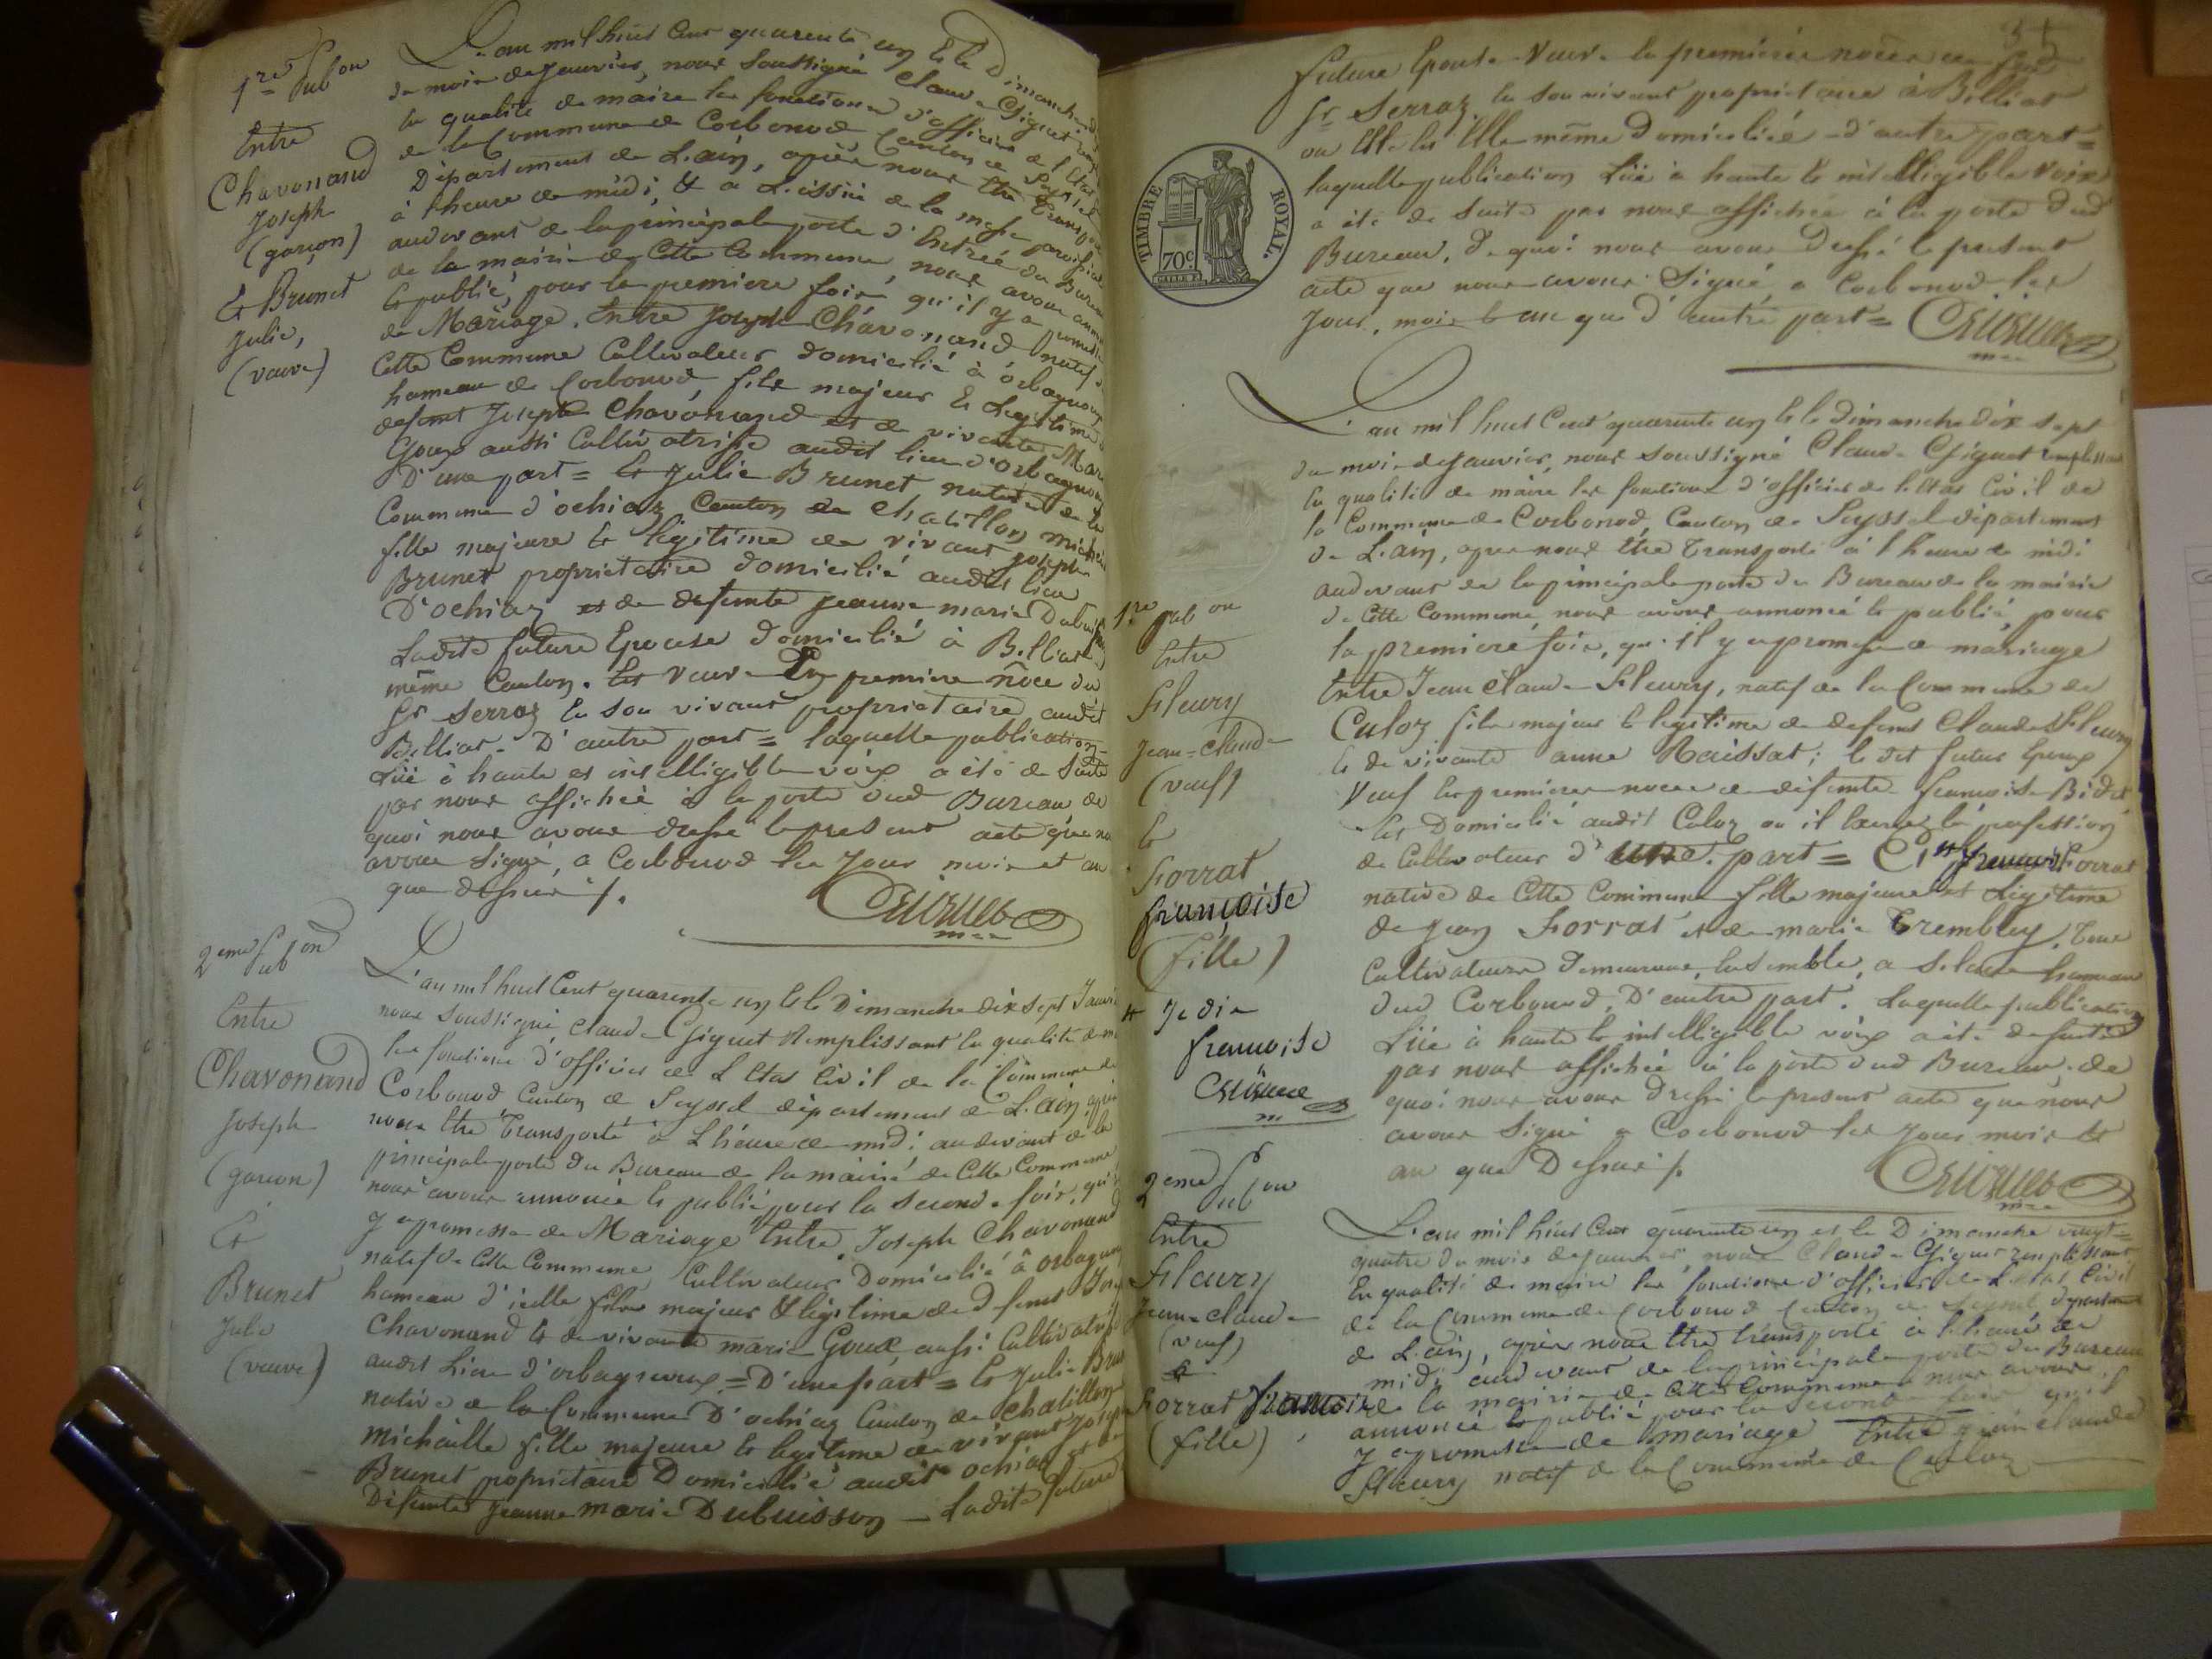 1re Pubon
Entre
Chavonand
Joseph
(garçon)
Et Brunet
Julie,
(veuve)
L'an mil huit Cent quarente un Et le Dimanche
du mois de janvier, nous soussigné Claude Ggiguet
la qualité de maire les fonctions d'officier de l'Etat
de la Commune de Corbonod Canton de Seyssel
Département de L'ain, après nous être transporté
à l'heure de midi, & a L'issüe de la messe paroissiale
audevant de la principale porte d'Entrée du Bureau
de la mairie de Cette Commune, nous avons annoncé
et publié, pour la premiere fois qu'il y a promesse
de Mariage, Entre Joseph Chavonand natif de
Cette Commune Cultivateur domicilié à Orbagnoux
hameau de Corbonod fils majeur & Legitime de
defunt Joseph Chavonand et de vivante Marie
Goux aussi Cultivatrice audit lieu d'Orbagnoux
D'une part = Et Julie Brunet native de la
Commune d'ochiaz Canton de Chatillon michaille
fille majeure et légitime de vivant joseph
Brunet propriétaire domicilié audit lieu
D'ochiaz et de defunte jeanne marie Dubuisson
Ladite future Epouse domicilié à Billiat
même Canton. Et veuve En premiere nôce du
Sr Serraz En son vivant propriétaire audit
Billiat. D'autre part = laquelle publication
Lüe à haute et intelligible voix a été de suite
par nous affichée à la porte dud Bureau de
quoi nous avons dressé le present acte que nous
avons Signé, a Corbonod les Jour mois et an
que dessus /.
2eme Pubon
Entre
Chavonand
Joseph
(garcon)
Et
Brunet
Julie
(veuve)
L'an mil huit Cent quarente un Et le Dimanche dix sept Janvier
nous soussigné Claude Ggiguet Remplissant la qualité de maire
les fonctions d'officier de L'Etat Civil de la Commune de
Corbonod Canton de Seyssel département de L'ain, après
nous être Transporté à L'heure de midi audevant de la
principale porte du Bureau de la mairie de Cette Commune
nous avons annoncé et publié pour la seconde fois, qu'il
y a promesse de Mariage Entre Joseph Chavonand
natif de Cette Commune Cultivateur Domicilié à orbagnoux
hameau d'icelle fils majeur & légitime de defunt Joseph
Chavonand et de vivante marie Goux aussi Cultivatrice
audit Lieu d'orbagnoux = D'une part = Et Julie Brunet
native de la Commune D'ochiaz Canton de Chatillon
michaille fille majeure et legitime de vivant Joseph
Brunet propriétaire Domicilié audit ochiaz et de
Défunte jeanne marie Dubuisson — Ladite future
35
future Epouse Veuve En premiere nôce
Sr Serraz, En son vivant propriétaire à Billiat
ou Elle Est Elle même Domiciliée - d'autre part =
laquelle publication Lüe à haute Et intelligible voix
a été de suite par nous affichée à la porte dud
Bureau, de quoi nous avons Dressé le present
acte que nous avons Signé, a Corbonod les
Jour, mois & an que d'autre part =
TIMBRE ROYAL.
70c
1re pubon
Entre
Fleury
Jean-Claude
(veuf)
Et
Forrat
françoise
(fille)
# Je dis
francoise
L'an mil huit Cent quarente un Et le dimanche dix sept
du mois de janvier, nous soussigné Claude Ggiguet remplissant
la qualité de maire les fonctions d'officier de l'Etat Civil de
la Commune de Corbonod, Canton de Seyssel département
de L'ain, apres nous être Transporté à l'heure de midi
audevant de la principale porte du Bureau de la mairie
de Cette Commune, nous avons annoncé Et publié, pour
la premiere fois, qu'il y a promesse de mariage
Entre Jean Claude Fleury, natif de la Commune de
Culoz fils majeur & legitime de defunt Claude Fleury
Et de vivante anne Raissat; le dit futur Epoux
Veuf En premiere noces de défunte francoise Bidat
Est Domicilié audit Culoz ou il Exerce la profession
de Cultivateur d'une part = Et # Forrat
native de Cette Commune fille majeure et Légitime
de jean Forrat et de marie Trembley, tous
Cultivateurs demeurant Ensemble, a Silans hameau
dud Corbonod, D'autre part. Laquelle publication
Lüe à haute & intelligible voix a été de suite
par nous affichée à la porte dud Bureau, de
quoi nous avons dressé le present acte que nous
avons Signé a Corbonod les Jour mois &
an que Dessus /.
2eme Pubon
Entre
Fleury
Jean-Claude
(veuf)
&
Forrat francoise
(fille)
L'an mil huit Cent quarente un et le Dimanche vingt=
quatre du mois de janvier, nous Claude Ggiguet remplissant
la qualité de maire les fonctions d'officier de L'Etat Civil
de la Commune de Corbonod Canton de Seyssel département
de L'ain, après nous être transporté à l'heure de
midi audevant de la principale porte du Bureau
de la mairie de Cette Commune nous avons
annoncé et publié pour la seconde fois qu'il
y a promesse de mariage Entre jean Claude
fleury natif de la Commune de Culoz